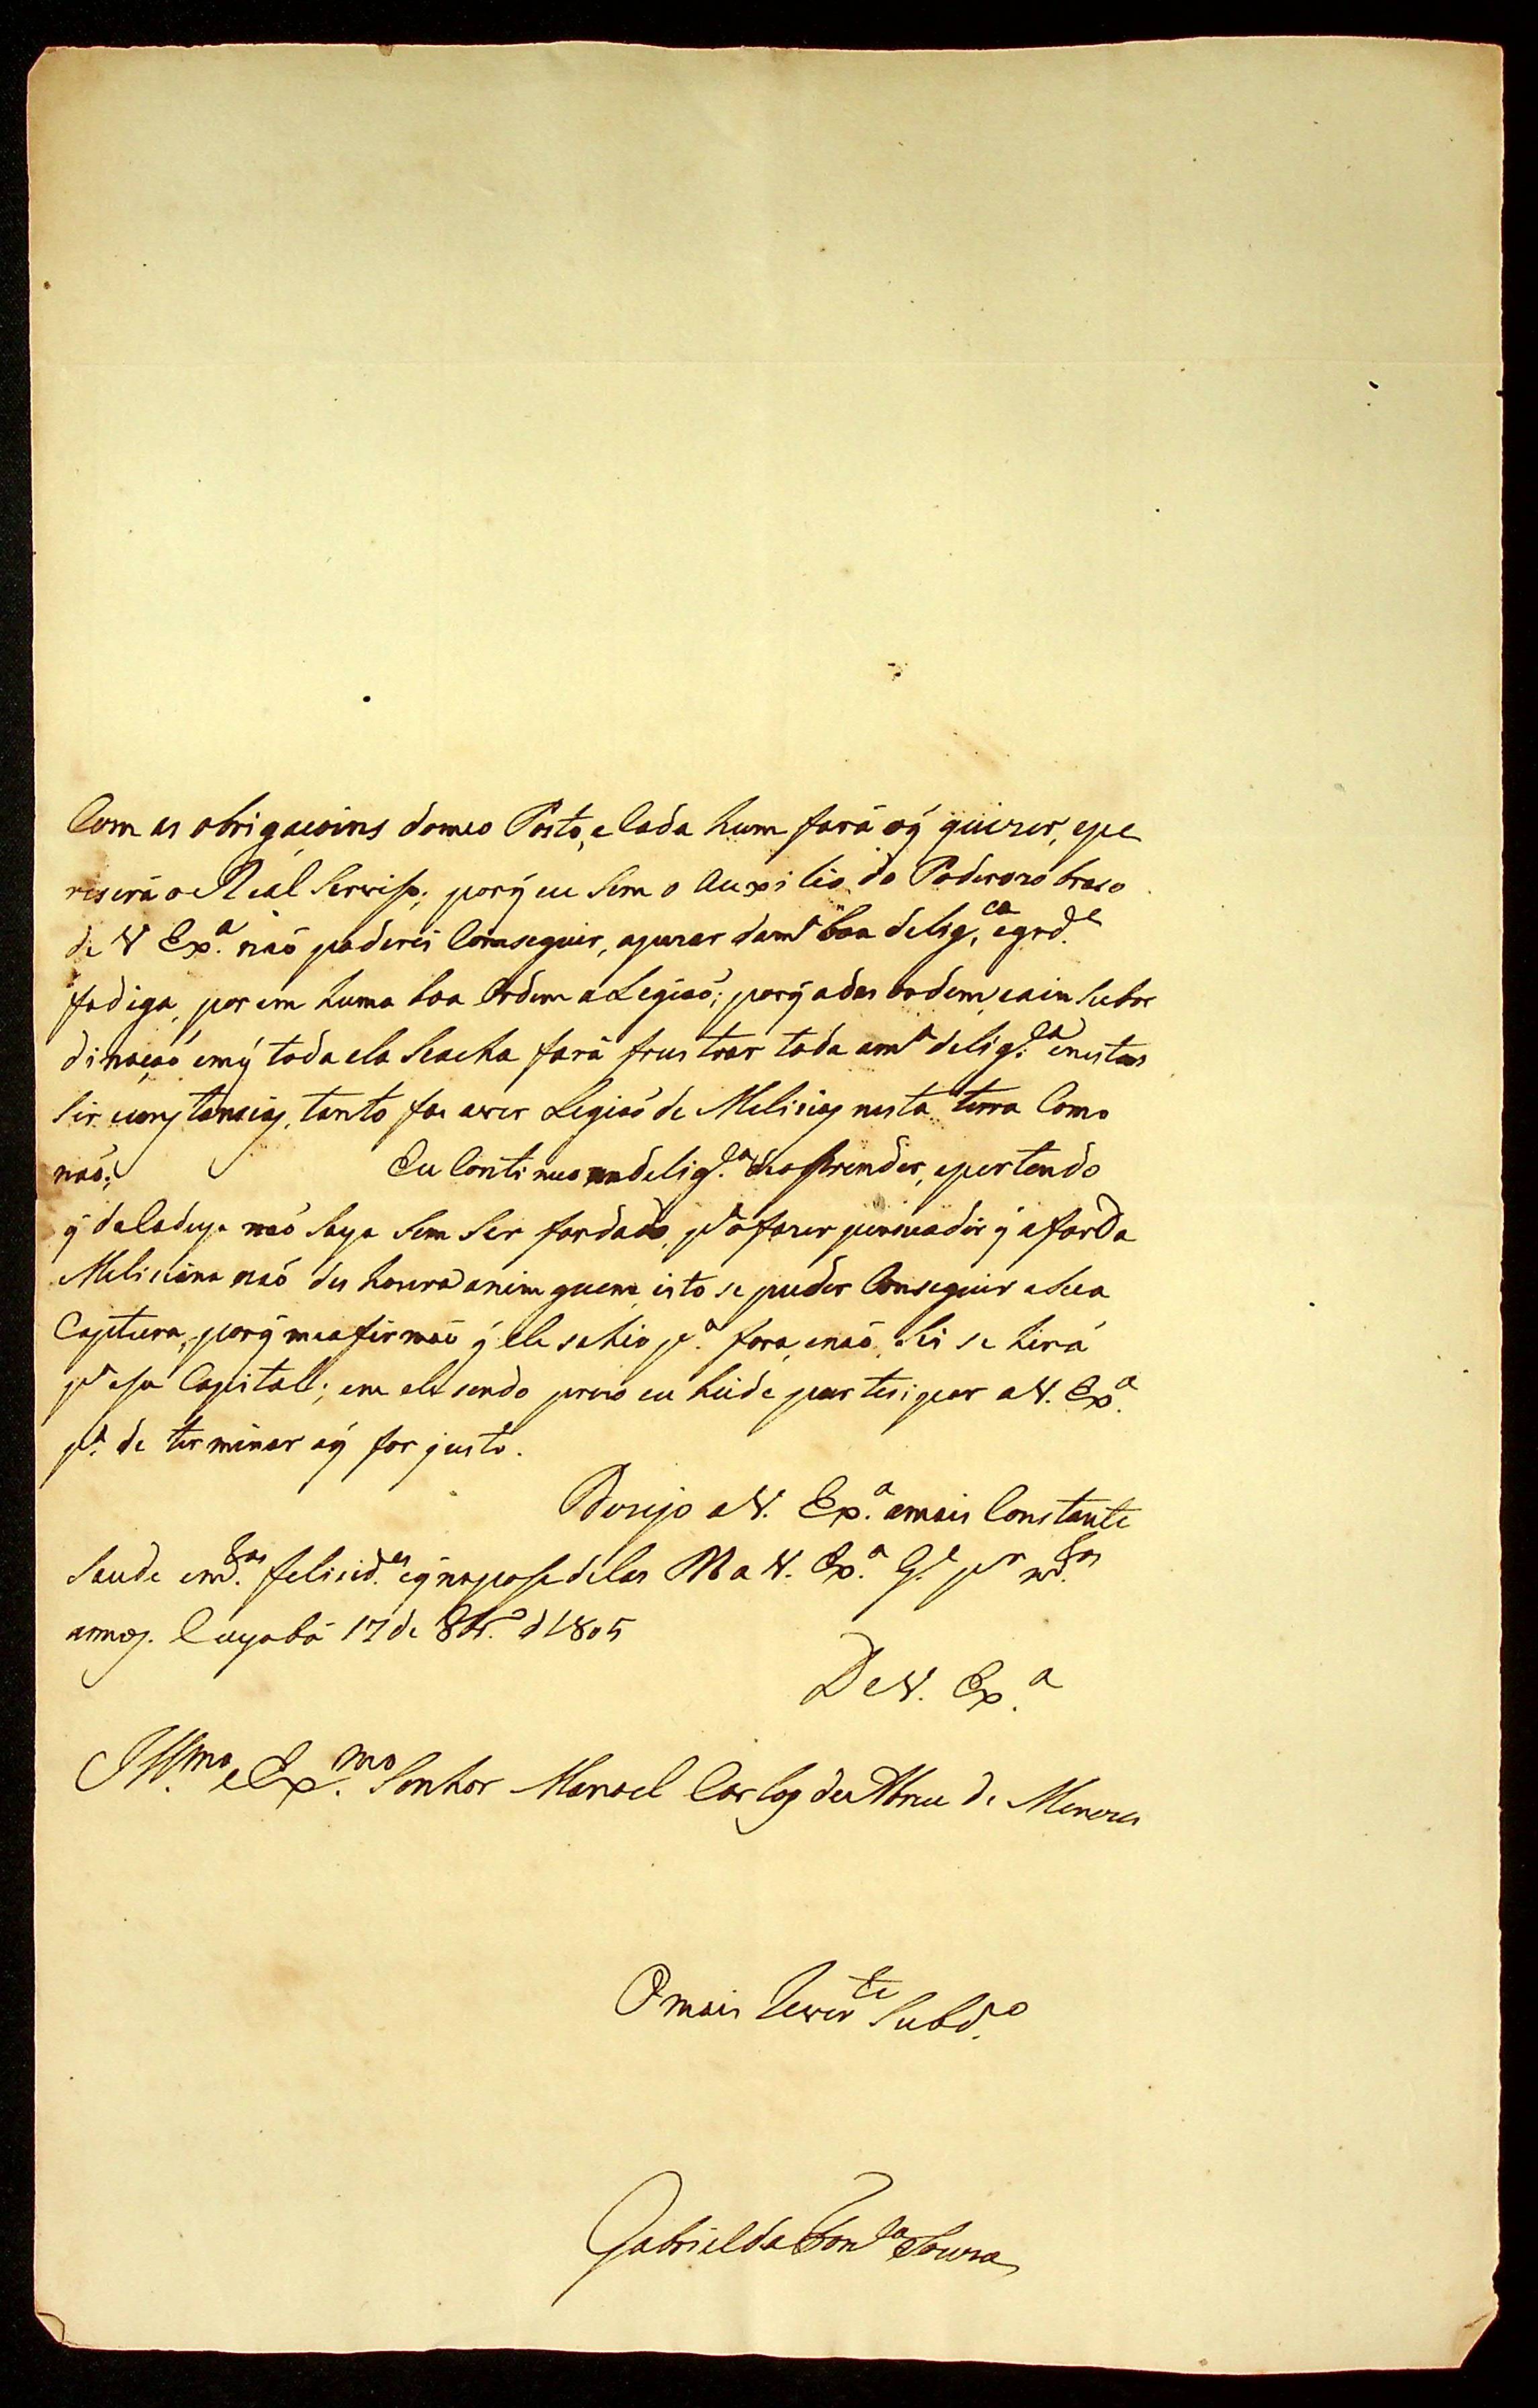 Com as obrigaçoins domeo Posto, e Cada hum fará oq̃ quizer, epe
reserá o Rial Serviso; porq̃ eu Sem o Auxilio do Poderozo braso
de V Exª. naõ poderei Comseguir, apezar damª boa delig,ca egrd.e
fadiga, por em huma boa Ordem a Legiaõ; porq̃ ades ordem, eain Subor
dinaçaõ emq̃ toda ela Seacha fará frus trar toda amª delig.ca enestas
Sir cunstancias, tanto fas aver Legiaõ de Melicias nesta terra Como
naõ; Eu Continuo na delig.ca de o prender, epertendo
q̃ da Cadeya naõ Saya Sem Ser fardado, pª ofazer persuadir q̃ afarda
Meliciana naõ des honra anim guem, isto se puder Conseguir a Sua
Captura, porq̃ me afirmaõ q̃ ele sahio pª. fora, enaõ Sei se hirá
pª esa Capital; em ele sendo prezo eu heide partisipar a V. Exª.
pª. de terminar oq̃ for justo.
Dezejo a V. Exª. amais Constante
Saude em.tas felicid.es eq̃ naposse delas D a V. Exª. G.e p.r m.tos
annos. Cuyabá 17 de 8br.º d 1805
De V. Exª.
Ill.mo e Ex.mo Senhor Manoel Carlos de Abreu de Menezes
O mais Rever te Subd.º
Gabriel da Fonca Souza